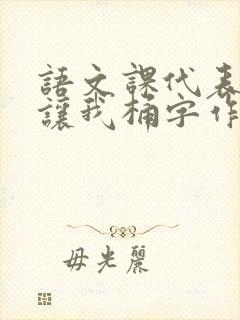 語文課代表
讓我桶字作
毋光麗